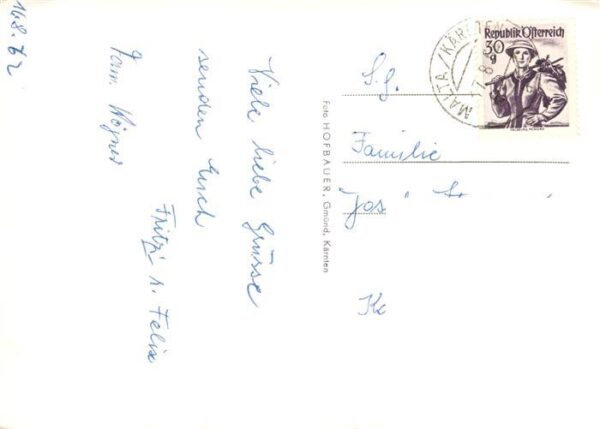 16.8.62
Viele liebe Grüsse
senden Euch
Fritzi u. Felix
Fam.
Foto HOFBAUER, Gmünd, Kärnten
MALTA / KÄRNTEN
Republik Österreich
30
g
S.g.
Familie
"Jos"